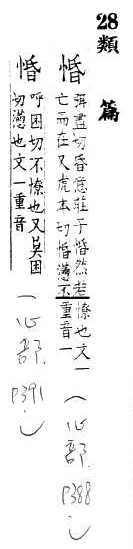 28類篇
惛 弭盡切昏意莊子惛然若
亡而在又虎本切惛懣不
憭也文一
重音一
(心部 P388)
惛 呼困切不憭也又莫困
切懣也文一重音一
(心部 P391)